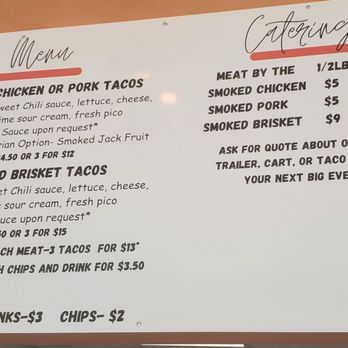 Menu
CHICKEN OR PORK TACOS
weet Chili sauce, lettuce, cheese,
ime sour cream, fresh pico
Sauce upon request*
rian Option- Smoked Jack Fruit
4.50 OR 3 FOR $12
D BRISKET TACOS
et Chili sauce, lettuce, cheese,
e sour cream, fresh pico
uce upon request*
50 OR 3 FOR $15
CH MEAT-3 TACOS FOR $13*
H CHIPS AND DRINK FOR $3.50
NKS-$3 CHIPS- $2
Catering
MEAT BY THE 1/2LB
SMOKED CHICKEN $5
SMOKED PORK $5
SMOKED BRISKET $9
ASK FOR QUOTE ABOUT O
TRAILER, CART, OR TACO
YOUR NEXT BIG EVE